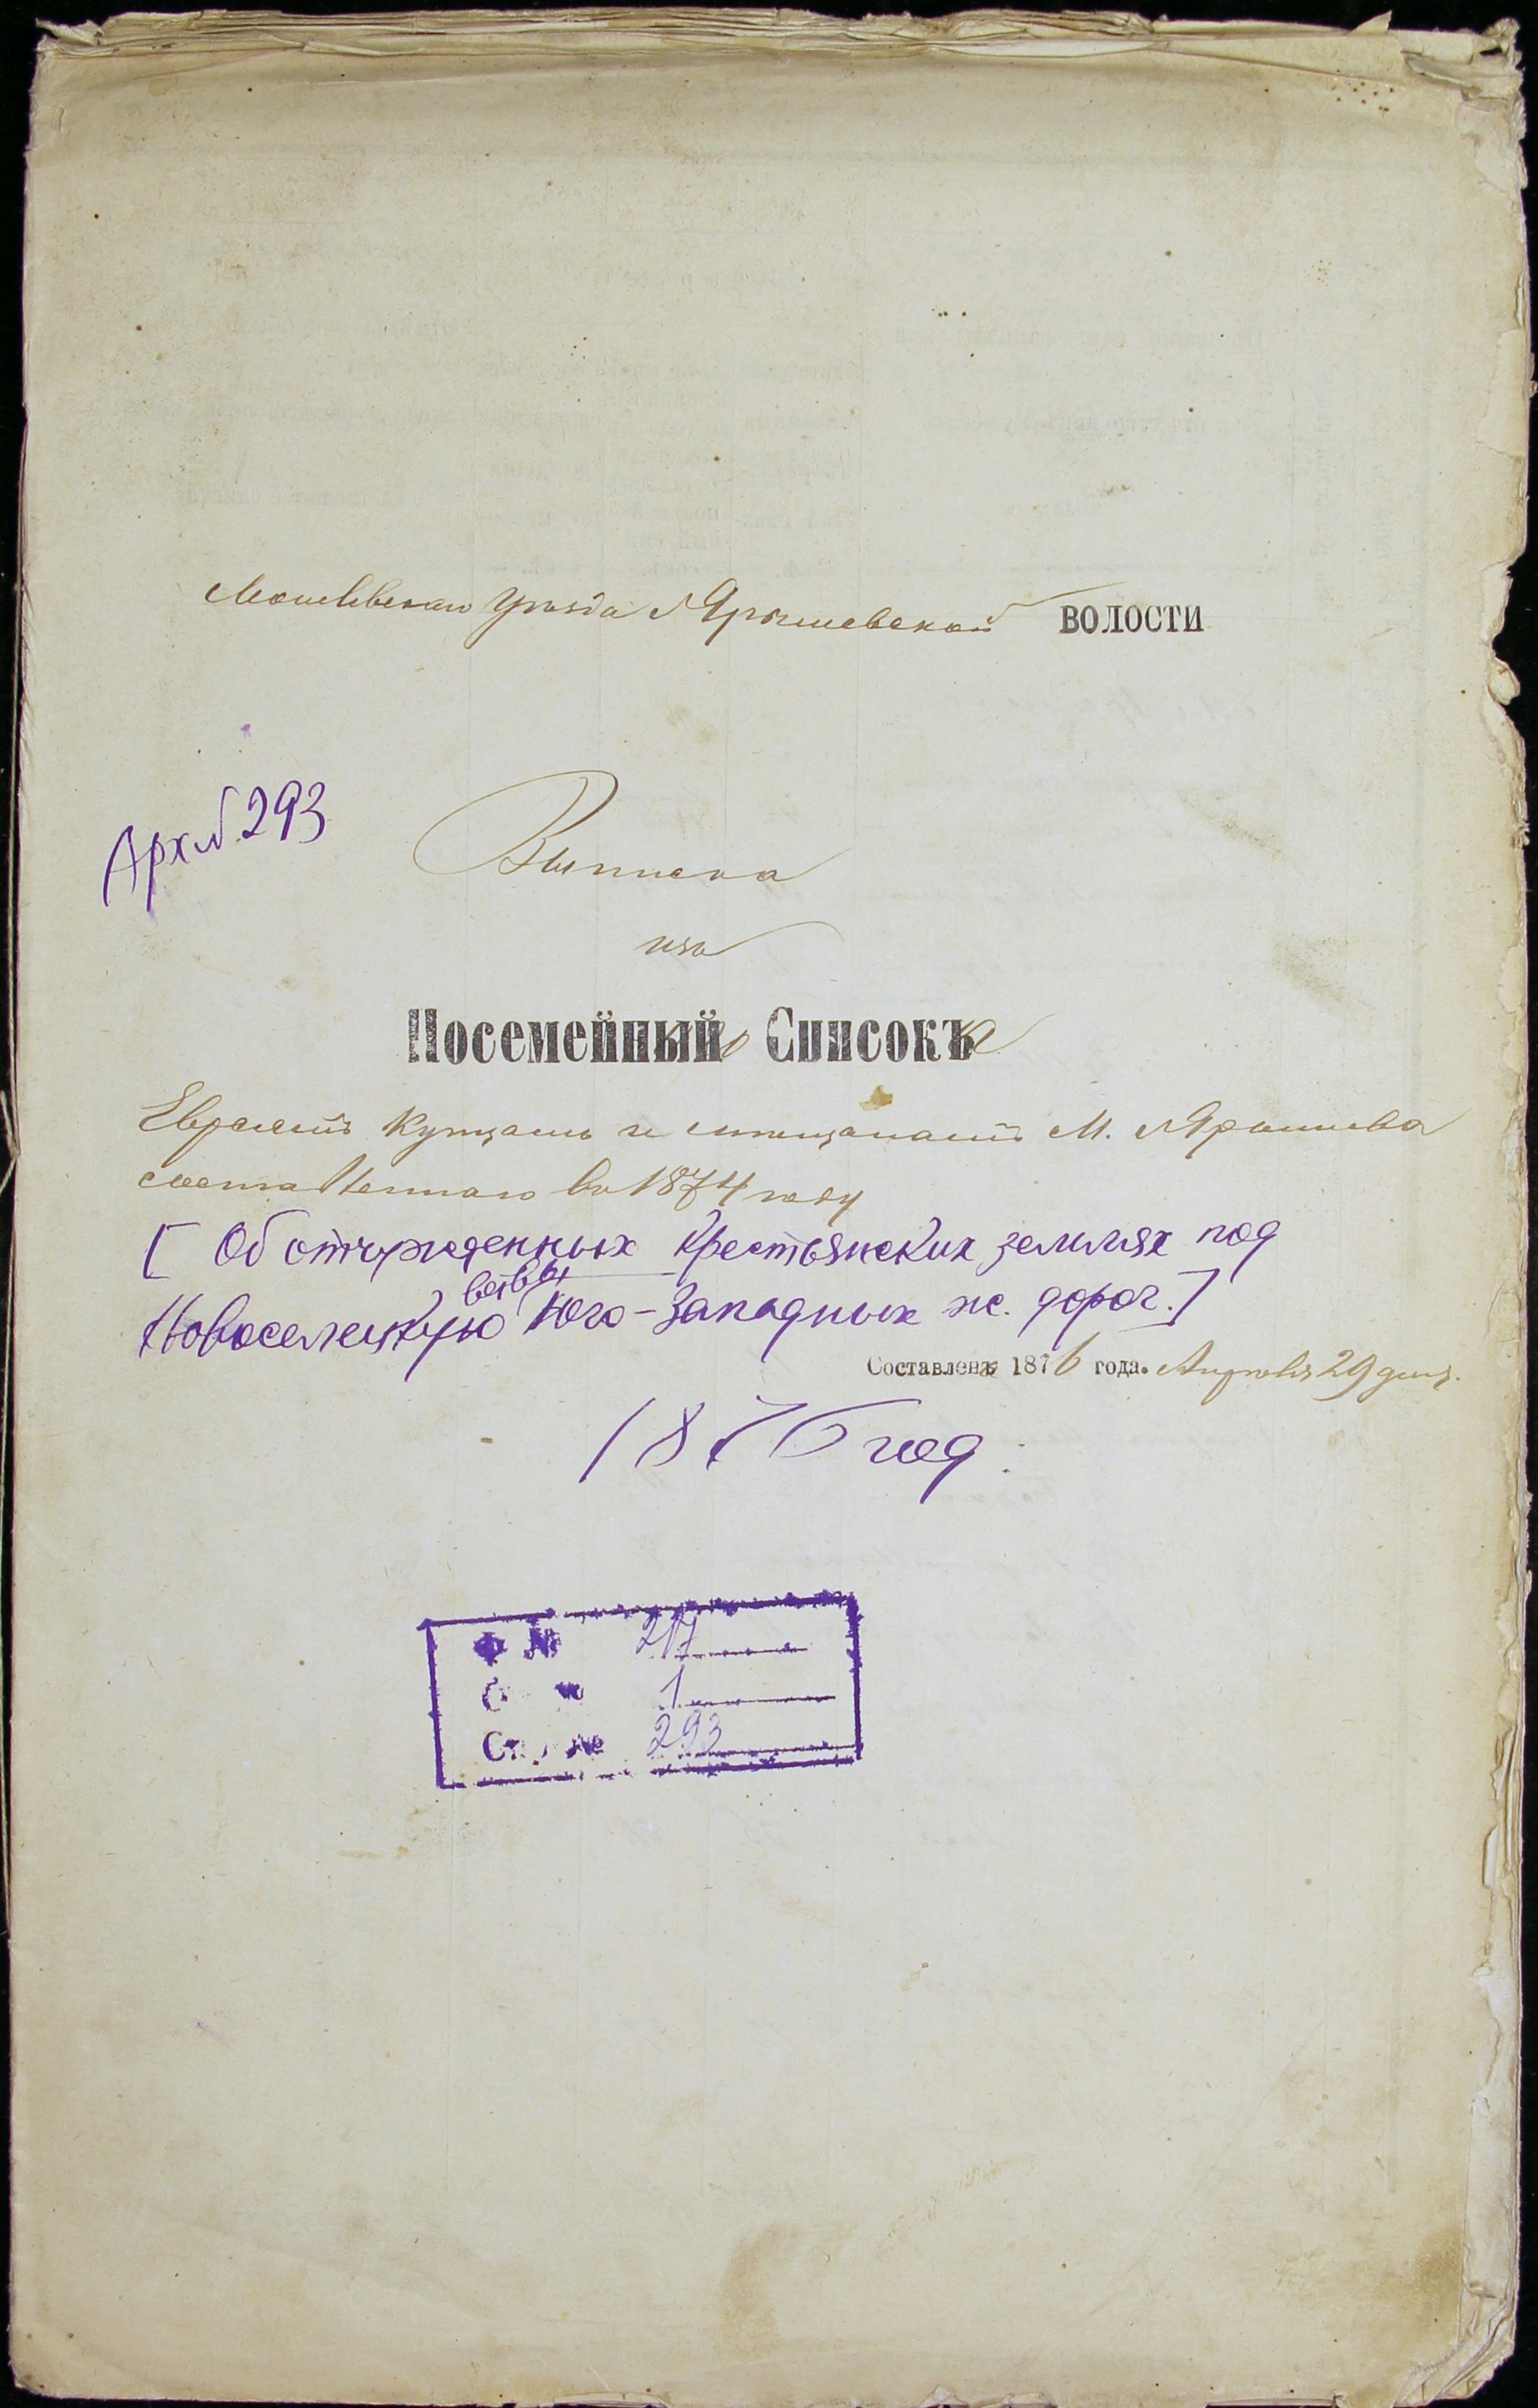 Могилевскаго Уѣзда Ярышевской ВОЛОСТИ
Арх № 293
Выписка
изъ
Посемейнаго Списка
Евреямъ купцамъ и мѣщанамъ М. Ярышева
составленнаго въ 1874 году
[ Об отчужденных крестьянских землях под
ветвь
Новоселицкую Юго-Западных ж. дорог.]
Составлена 1876 года. Апрѣля 29 дня.
1876 год.
Ф № 217
Оп № 1
Спр № 293